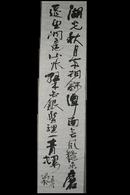 湖光秋月兩相和潭面無風鏡未磨
遙望洞庭山水翠白銀盤裡一青螺